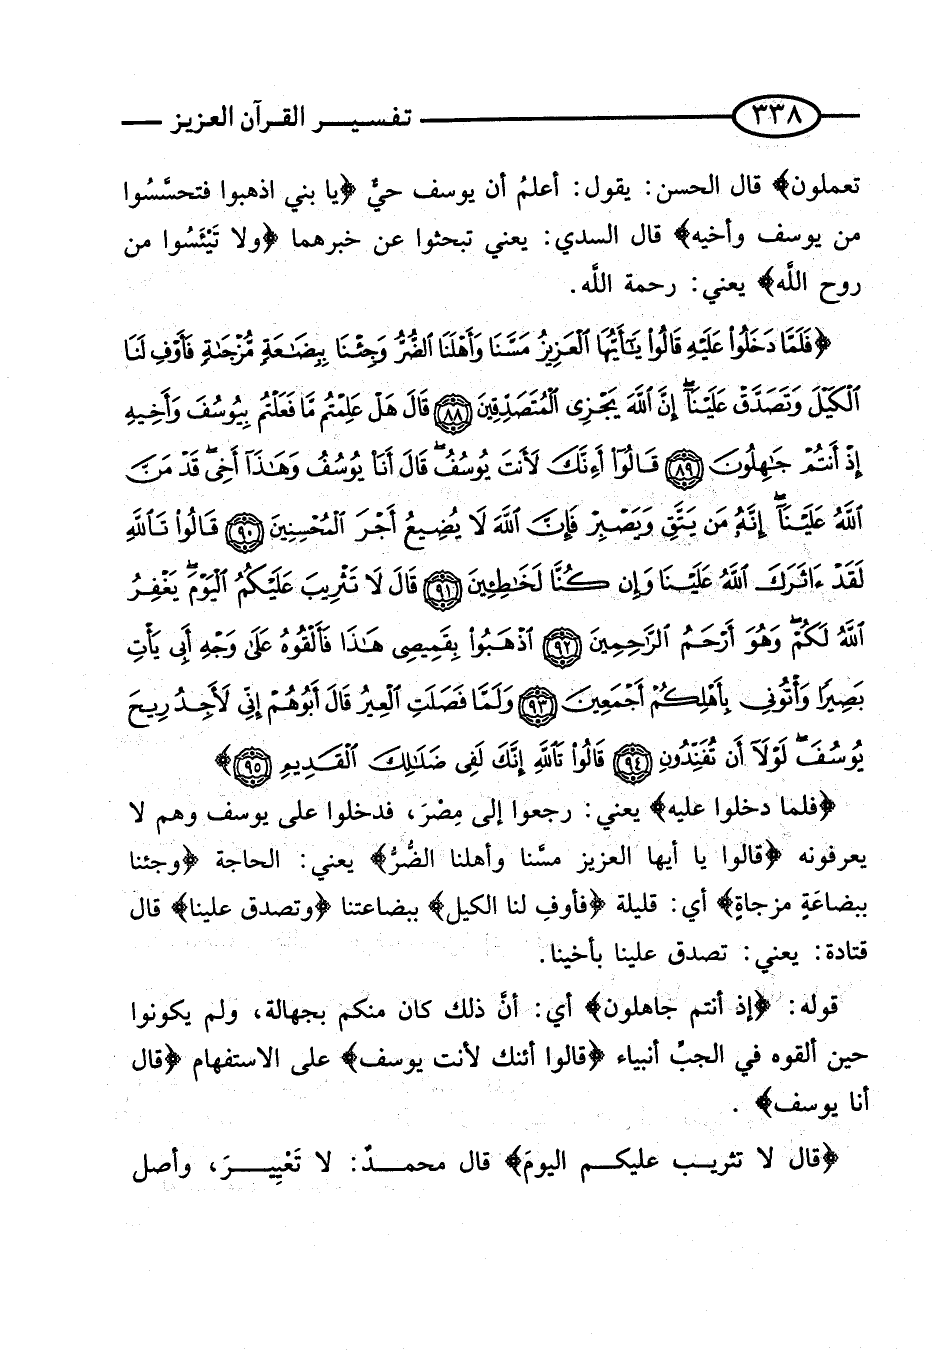 ٣٣٨ تفسير القرآن العزيز
تعملون﴾ قال الحسن: يقول: أعلمُ أن يوسف حيٌّ ﴿يا بني اذهبوا فتحسَّسُوا
من يوسف وأخيه﴾ قال السدي: يعني تبحثوا عن خبرهما ﴿ولا تَيْئَسُوا من
روح اللَّه﴾ يعني: رحمة اللَّه.
﴿فَلَمَّا دَخَلُواْ عَلَيْهِ قَالُواْ يَٰٓأَيُّهَا ٱلْعَزِيزُ مَسَّنَا وَأَهْلَنَا ٱلضُّرُّ وَجِئْنَا بِبِضَٰعَةٍ مُّزْجَىٰةٍ فَأَوْفِ لَنَا
ٱلْكَيْلَ وَتَصَدَّقْ عَلَيْنَآۖ إِنَّ ٱللَّهَ يَجْزِى ٱلْمُتَصَدِّقِينَ ٨٨ قَالَ هَلْ عَلِمْتُم مَّا فَعَلْتُم بِيُوسُفَ وَأَخِيهِ
إِذْ أَنتُمْ جَٰهِلُونَ ٨٩ قَالُوٓاْ أَءِنَّكَ لَأَنتَ يُوسُفُۖ قَالَ أَنَا۠ يُوسُفُ وَهَٰذَآ أَخِىۖ قَدْ مَنَّ
ٱللَّهُ عَلَيْنَآۖ إِنَّهُۥ مَن يَتَّقِ وَيَصْبِرْ فَإِنَّ ٱللَّهَ لَا يُضِيعُ أَجْرَ ٱلْمُحْسِنِينَ ٩٠ قَالُواْ تَٱللَّهِ
لَقَدْ ءَاثَرَكَ ٱللَّهُ عَلَيْنَا وَإِن كُنَّا لَخَٰطِـِٔينَ ٩١ قَالَ لَا تَثْرِيبَ عَلَيْكُمُ ٱلْيَوْمَۖ يَغْفِرُ
ٱللَّهُ لَكُمْۖ وَهُوَ أَرْحَمُ ٱلرَّٰحِمِينَ ٩٢ ٱذْهَبُواْ بِقَمِيصِى هَٰذَا فَأَلْقُوهُ عَلَىٰ وَجْهِ أَبِى يَأْتِ
بَصِيرًا وَأْتُونِى بِأَهْلِكُمْ أَجْمَعِينَ ٩٣ وَلَمَّا فَصَلَتِ ٱلْعِيرُ قَالَ أَبُوهُمْ إِنِّى لَأَجِدُ رِيحَ
يُوسُفَۖ لَوْلَآ أَن تُفَنِّدُونِ ٩٤ قَالُواْ تَٱللَّهِ إِنَّكَ لَفِى ضَلَٰلِكَ ٱلْقَدِيمِ ٩٥﴾
﴿فلما دخلوا عليه﴾ يعني: رجعوا إلى مِصْرَ، فدخلوا على يوسف وهم لا
يعرفونه ﴿قالوا يا أيها العزيز مسَّنا وأهلنا الضُّرُّ﴾ يعني: الحاجة ﴿وجئنا
ببضاعَةٍ مزجاةٍ﴾ أي: قليلة ﴿فأوفِ لنا الكيل﴾ ببضاعتنا ﴿وتصدق علينا﴾ قال
قتادة: يعني: تصدق علينا بأخينا.
قوله: ﴿إذ أنتم جاهلون﴾ أي: أنَّ ذلك كان منكم بجهالة، ولم يكونوا
حين ألقوه في الجبِّ أنبياء ﴿قالوا أئنك لأنت يوسف﴾ على الاستفهام ﴿قال
أنا يوسف﴾ .
﴿قال لا تثريب عليكم اليومَ﴾ قال محمدٌ: لا تَعْيِيرَ، وأصل